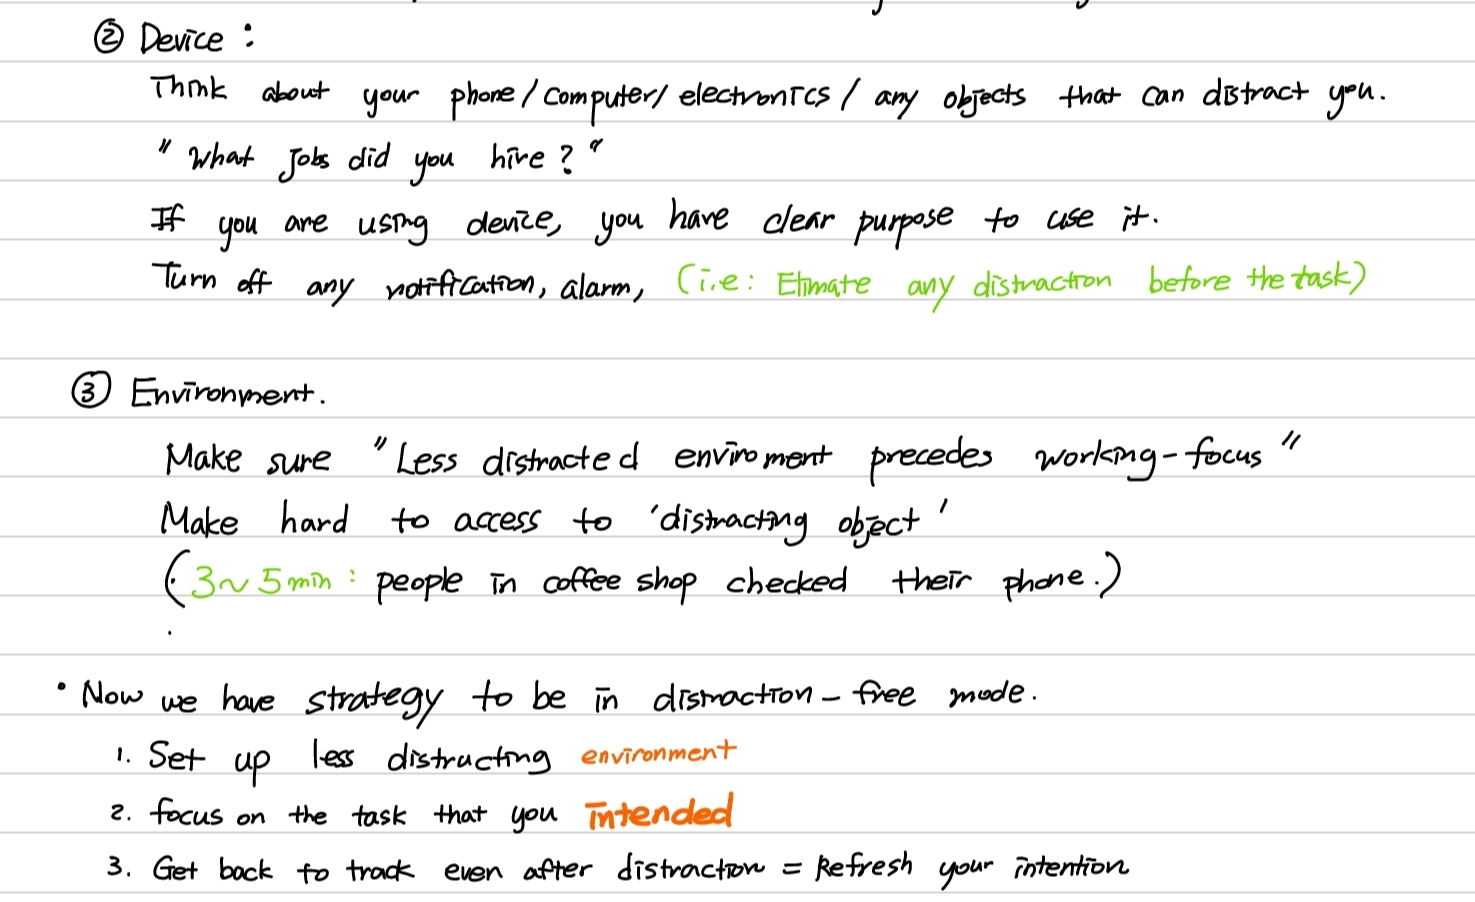 ② Device :
Think about your phone / computer / electronics / any objects that can distract you.
" What Jobs did you hire ? "
If you are using device, you have clear purpose to use it.
Turn off any notification, alarm, (i.e : Elimate any distraction before the task)
③ Environment.
Make sure "Less distracted enviroment precedes working-focus"
Make hard to access to 'distracting object'
(3~5min : people in coffee shop checked their phone.)
• Now we have strategy to be in distraction-free mode.
1. Set up less distructing environment
2. focus on the task that you intended
3. Get back to track even after distraction = Refresh your intention